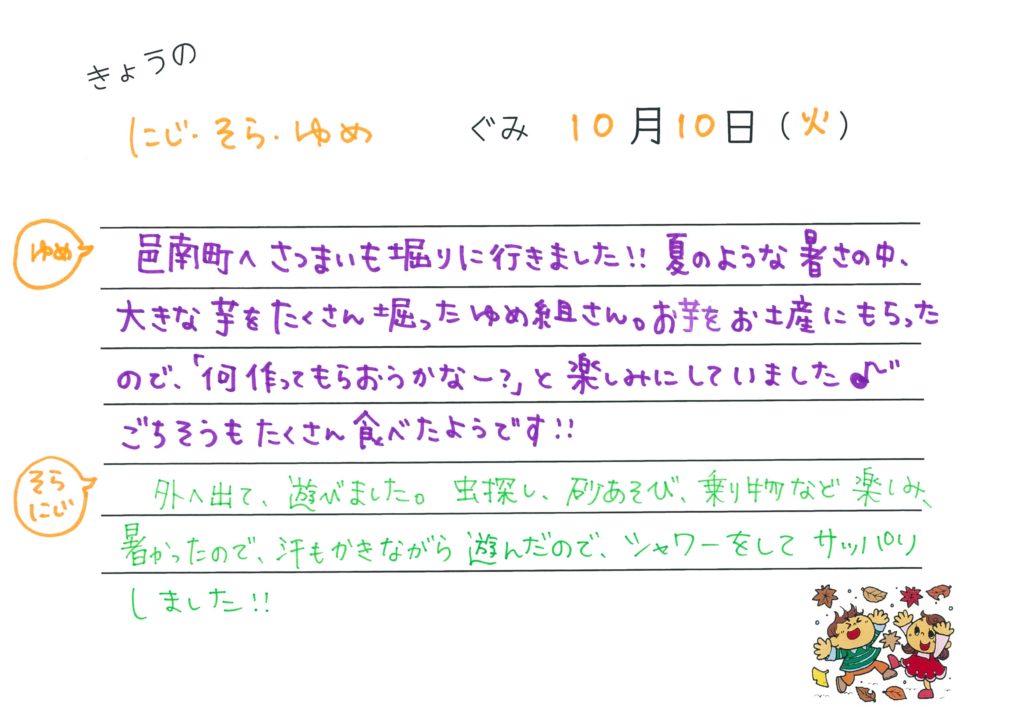 きょうの
にじ・そら・ゆめ ぐみ 10月10日(火)
ゆめ
邑南町へ さつまいも堀りに行きました!! 夏のような暑さの中、
大きな芋をたくさん堀ったゆめ組さん。お芋をお土産にもらった
ので、「何作ってもらおうかなー?」と楽しみにしていました♪
ごちそうもたくさん食べたようです!!
そら
にじ
外へ出て、遊びました。虫探し、砂あそび、乗り物など楽しみ、
暑かったので、汗もかきながら遊んだので、シャワーをしてサッパリ
しました!!